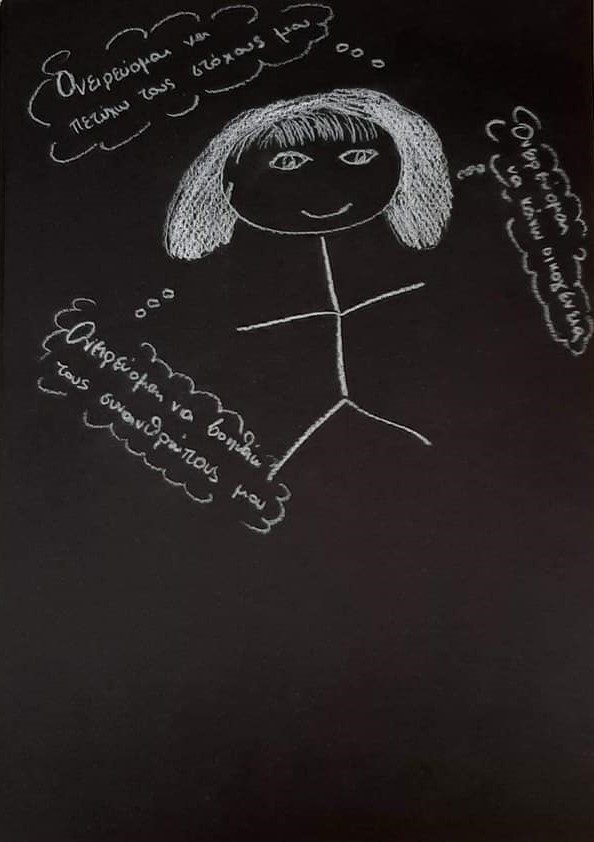 Ονειρεύομαι να
πετύχω τους στόχους μου
Ονειρεύομαι
να κάνω οικογένεια
Ονειρεύομαι να βοηθάω
τους συνανθρώπους μου